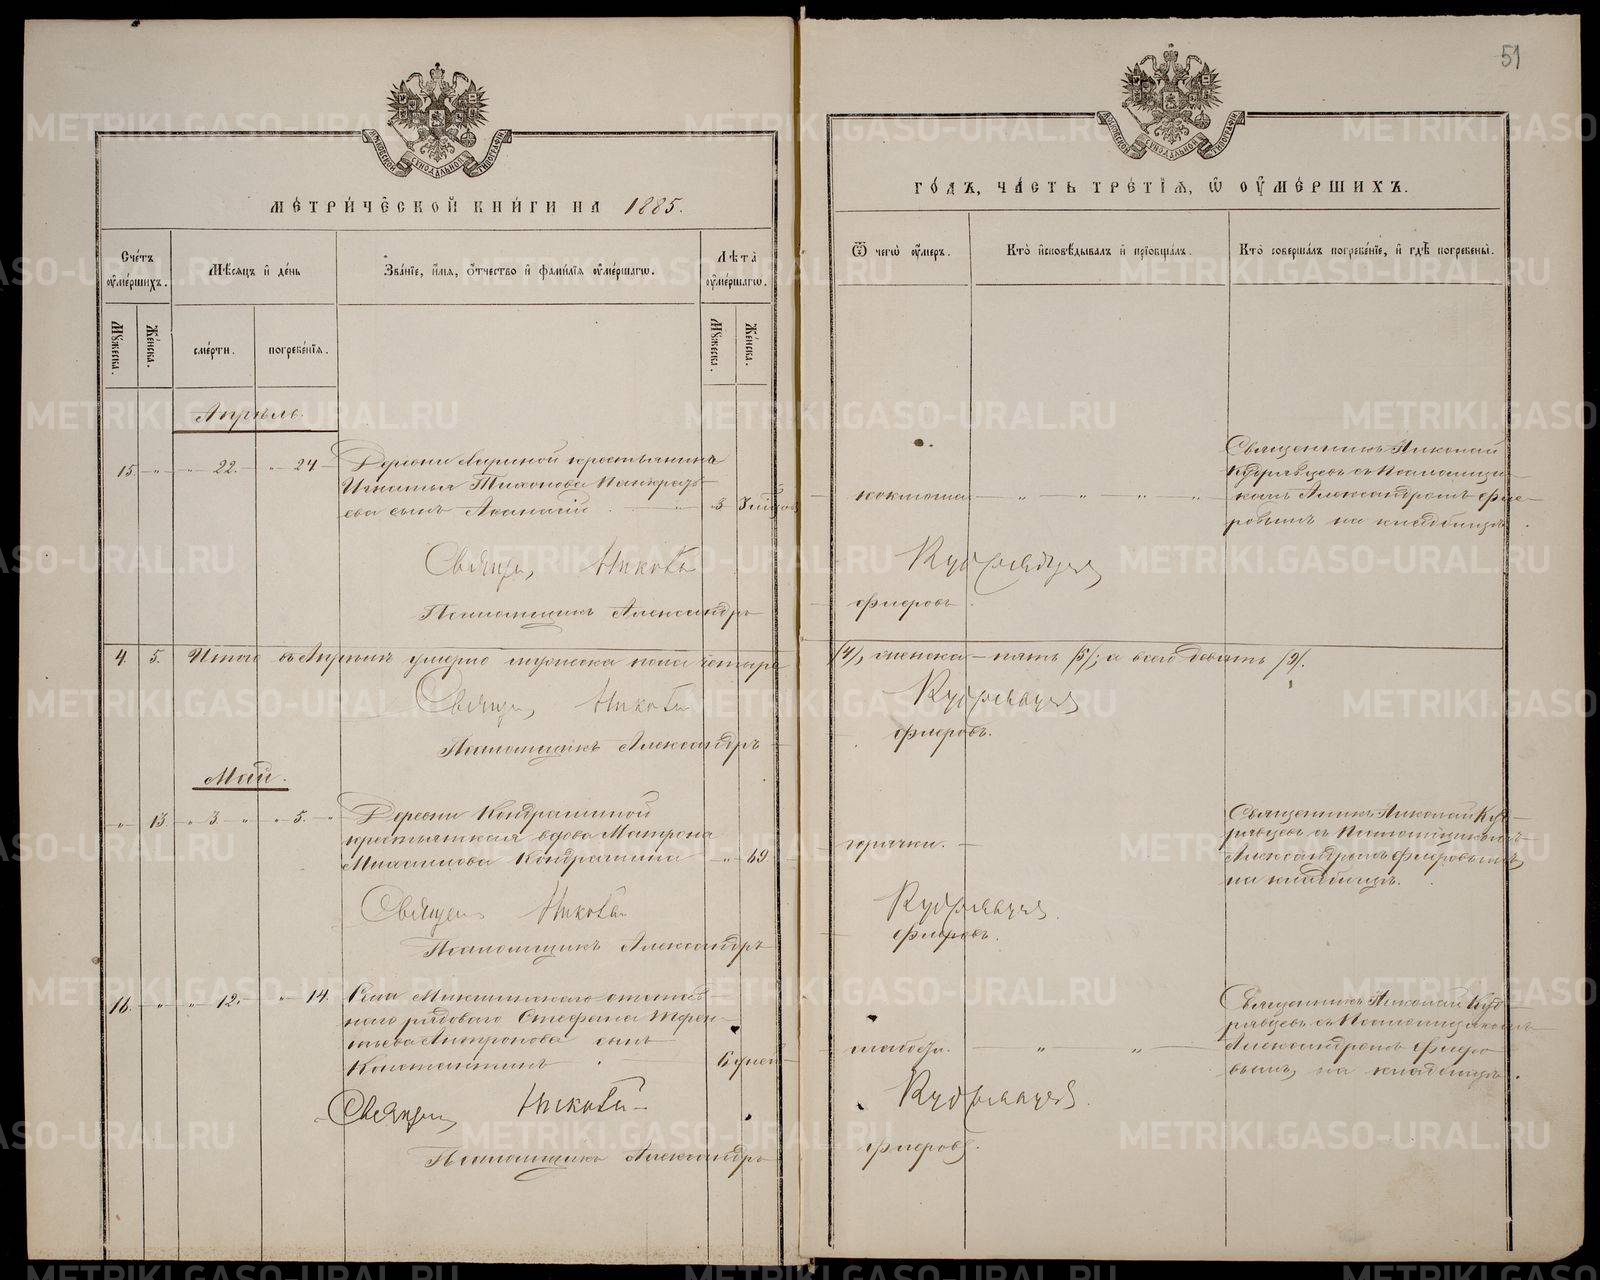 51
МЕТРИЧЕСКОЙ КНИГИ НА 1885.
ГОДЪ, ЧАСТЬ ТРЕТІЯ, Ѿ ОУМЕРШИХЪ.
Счетъ оумершихъ.
Мѣсяцъ и день
Званіе, имя, отчество и фамилія оумершагѡ.
Лѣта оумершагѡ.
Ѿ чегѡ оумеръ.
Кто исповѣдывалъ и пріобщалъ.
Кто совершалъ погребеніе, и гдѣ погребены.
Мужеска.
Женска.
смерти.
погребенія.
Мужеска.
Женска.
Апрѣль.
15. " " 22. " 24
Деревни крестьянина
Игнатья Тихонова Панкрать
ева сынъ Аѳанасій " 3
Священникъ Николай
Кудрявцевъ съ Помощни-
комъ Александромъ Фле-
ровымъ на кладбищѣ.
Священ. Николай Кудрявцевъ
Помощникъ Александръ Флеровъ.
4. 5. Итого въ Апрѣлѣ умерло мужеска пола четыре /4/, женска – пять /5/; а всего девять /9/.
Священ. Николай Кудрявцевъ
Помощникъ Александръ Флеровъ.
Май.
" 13. " 3. " " 5. "
Деревни Кондрашиной
крестьянская вдова Матрона
Михаилова Кондрашина " 69
горячки.
Священникъ Николай Куд-
рявцевъ съ Помощникомъ
Александромъ Флеровымъ
на кладбищѣ.
Священ. Николай Кудрявцевъ
Помощникъ Александръ Флеровъ.
16. " " 12. " 14.
Села отстав
наго рядоваго Стефана Терен-
тьева Антропова сынъ
Константинъ 6 дней
слабости. " "
Священникъ Николай Куд-
рявцевъ съ Помощникомъ
Александромъ Флеро-
вымъ, на кладбищѣ.
Священ. Николай Кудрявцевъ
Помощникъ Александръ Флеровъ.
METRIKI.GASO-URAL.RU